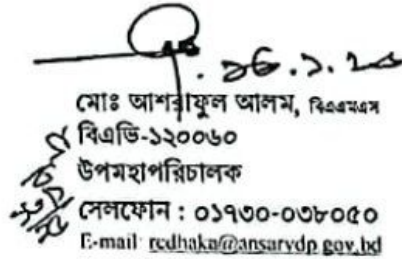 ২৬.১.২৫
মোঃ আশরাফুল আলম, বিএএমএস
বিএভি-১২০০৬০
উপমহাপরিচালক
সেলফোন : ০১৭৩০-০৩৮০৫০
E-mail: rcdhaka@ansarvdp.gov.bd